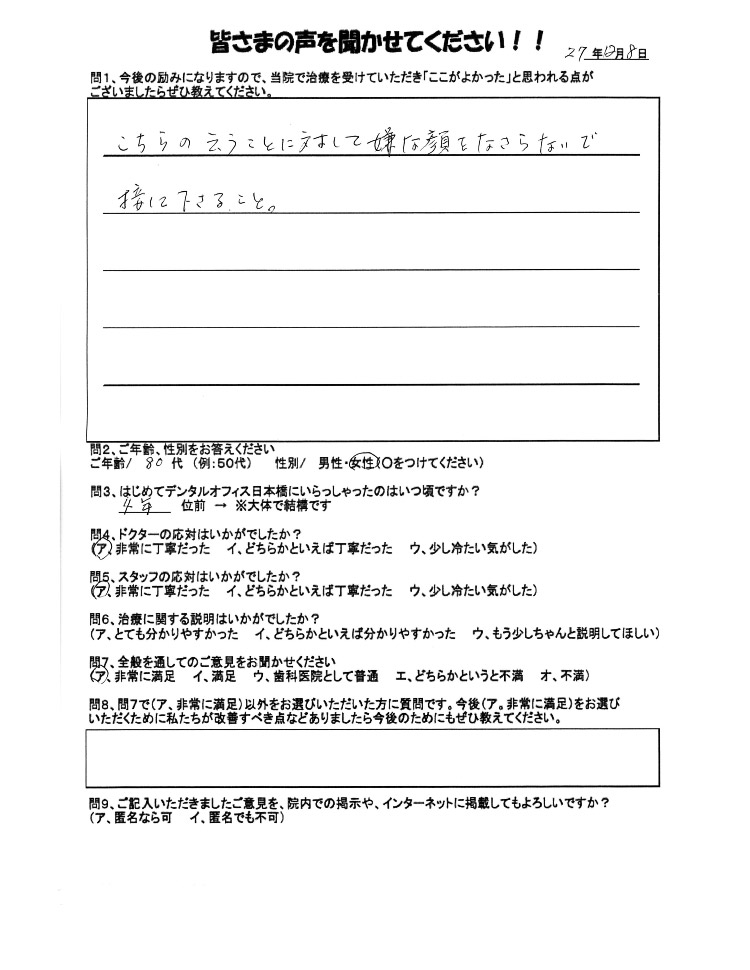 皆さまの声を聞かせてください！！
27年12月8日
問1、今後の励みになりますので、当院で治療を受けていただき「ここがよかった」と思われる点が
ございましたらぜひ教えてください。
こちらの云うことに対して嫌な顔をなさらないで
接して下さること。
問2、ご年齢、性別をお答えください
ご年齢/ 80 代 （例：50代） 性別/ 男性・女性（○をつけてください）
問3、はじめてデンタルオフィス日本橋にいらっしゃったのはいつ頃ですか？
4年 位前 → ※大体で結構です
問4、ドクターの応対はいかがでしたか？
（ア、非常に丁寧だった イ、どちらかといえば丁寧だった ウ、少し冷たい気がした）
問5、スタッフの応対はいかがでしたか？
（ア、非常に丁寧だった イ、どちらかといえば丁寧だった ウ、少し冷たい気がした）
問6、治療に関する説明はいかがでしたか？
（ア、とても分かりやすかった イ、どちらかといえば分かりやすかった ウ、もう少しちゃんと説明してほしい）
問7、全般を通してのご意見をお聞かせください
（ア、非常に満足 イ、満足 ウ、歯科医院として普通 エ、どちらかというと不満 オ、不満）
問8、問7で（ア、非常に満足）以外をお選びいただいた方に質問です。今後（ア。非常に満足）をお選び
いただくために私たちが改善すべき点などありましたら今後のためにもぜひ教えてください。
問9、ご記入いただきましたご意見を、院内での掲示や、インターネットに掲載してもよろしいですか？
（ア、匿名なら可 イ、匿名でも不可）